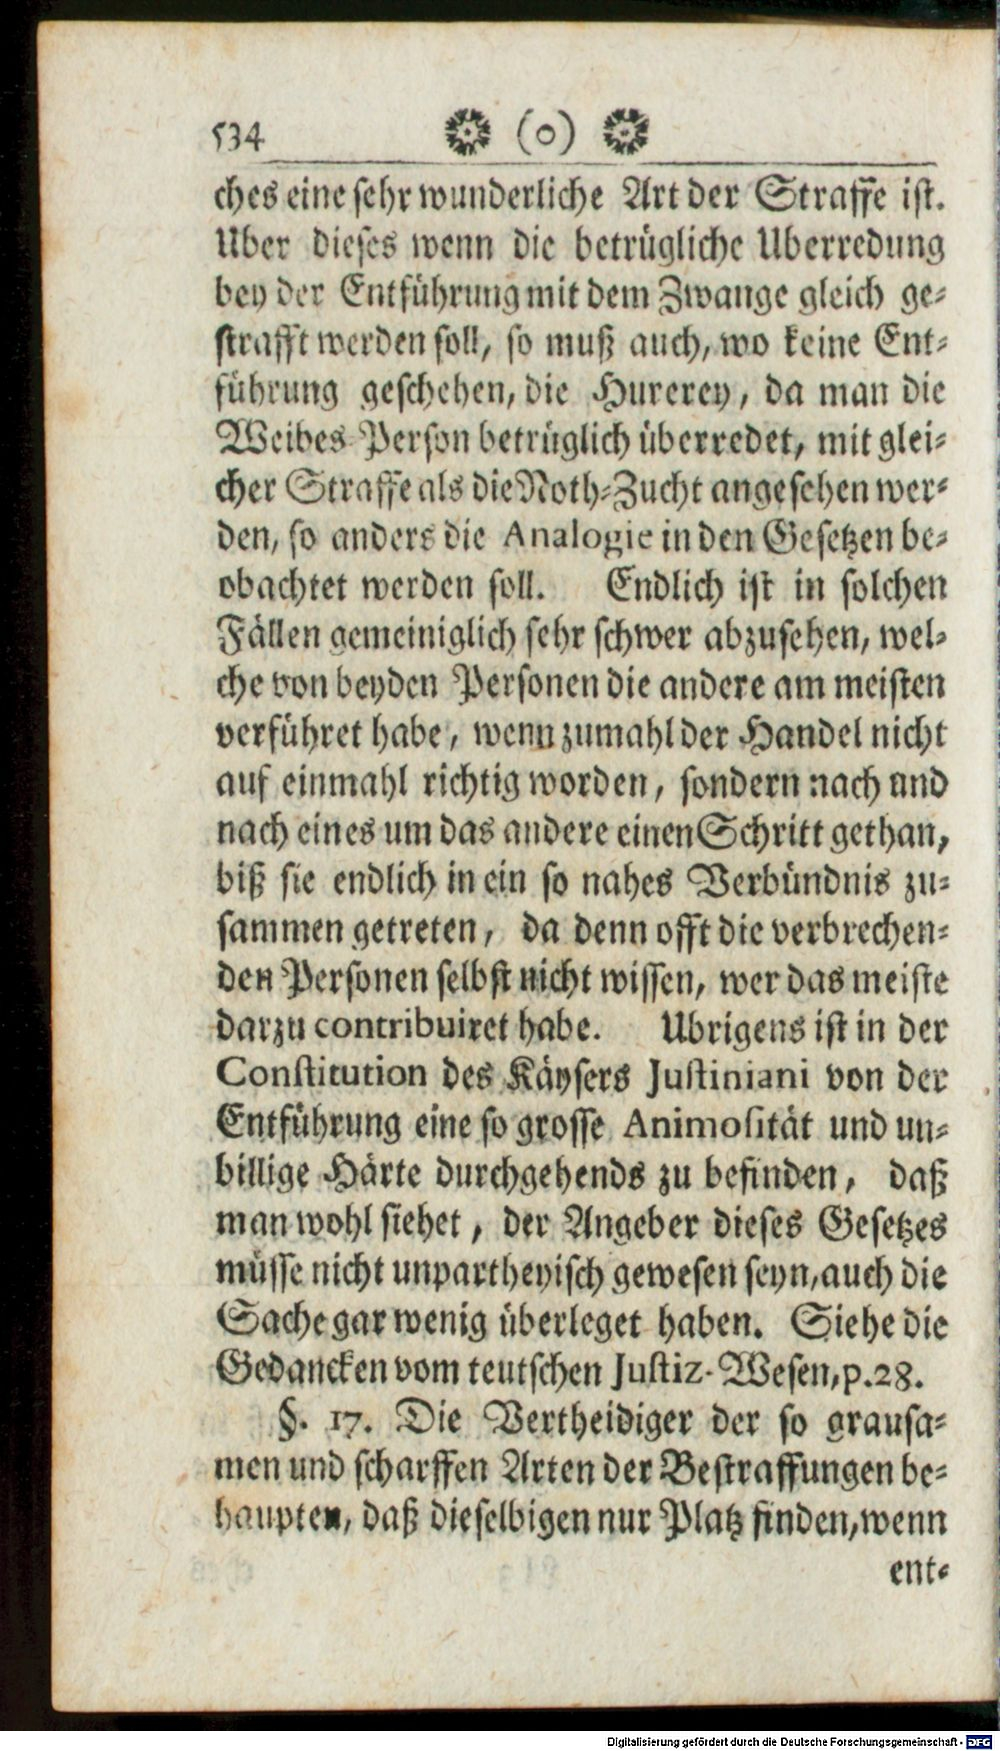 534 (o)
ches eine sehr wunderliche Art der Straffe ist.
Uber dieses wenn die betrügliche Uberredung
bey der Entführung mit dem Zwange gleich ge-
strafft werden soll, so muß auch, wo keine Ent-
führung geschehen, die Hurerey, da man die
Weibes-Person betrüglich überredet, mit glei-
cher Straffe als die Noth-Zucht angesehen wer-
den, so anders die Analogie in den Gesetzen be-
obachtet werden soll. Endlich ist in solchen
Fällen gemeiniglich sehr schwer abzusehen, wel-
che von beyden Personen die andere am meisten
verführet habe, wenn zumahl der Handel nicht
auf einmahl richtig worden, sondern nach und
nach eines um das andere einen Schritt gethan,
biß sie endlich in ein so nahes Verbündnis zu-
sammen getreten, da denn offt die verbrechen-
den Personen selbst nicht wissen, wer das meiste
darzu contribuiret habe. Ubrigens ist in der
Constitution des Käysers Justiniani von der
Entführung eine so grosse Animosität und un-
billige Härte durchgehends zu befinden, daß
man wohl siehet, der Angeber dieses Gesetzes
müsse nicht unpartheyisch gewesen seyn, auch die
Sache gar wenig überleget haben. Siehe die
Gedancken vom teutschen Justiz-Wesen, p. 28.
§. 17. Die Vertheidiger der so grausa-
men und scharffen Arten der Bestraffungen be-
haupten, daß dieselbigen nur Platz finden, wenn
ent-
Digitalisierung gefördert durch die Deutsche Forschungsgemeinschaft - DFG